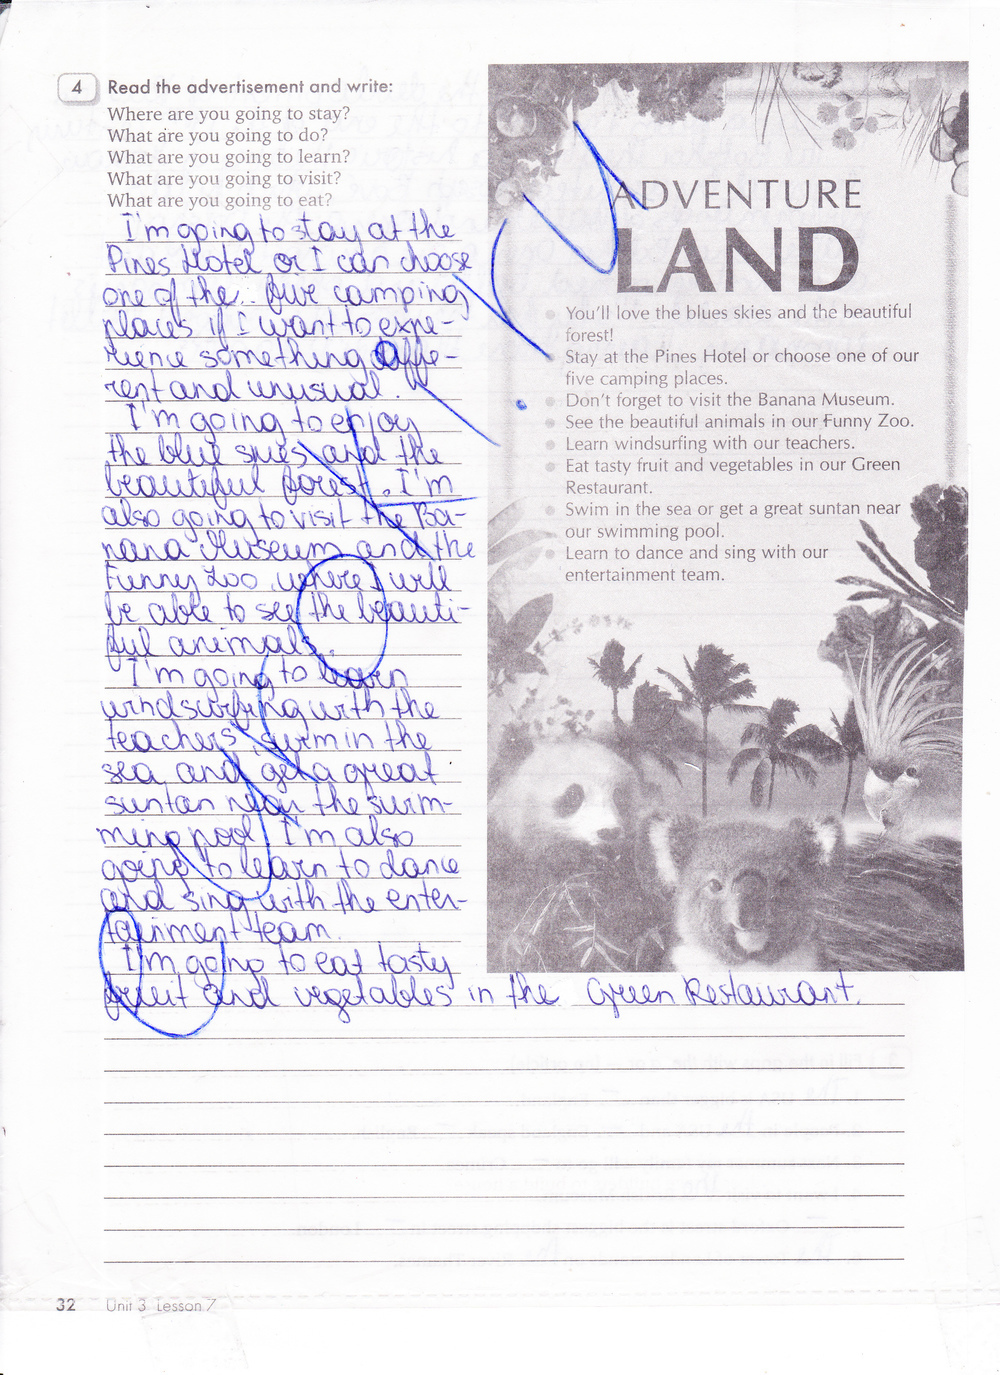 4 Read the advertisement and write:
Where are you going to stay?
What are you going to do?
What are you going to learn?
What are you going to visit?
What are you going to eat?
I'm going to stay at the
Pines Hotel or I can choose
one of the.. five camping
places if I want to expe-
rience something diffe-
rent and unusual.
I'm going to enjoy
the blue skies and the
beautiful forest. I'm
also going to visit the Ba-
nana Museum and the
Funny Zoo where I will
be able to see the beauti-
ful animals.
I'm going to learn
windsurfing with the
teachers, swim in the
sea and get a great
suntan near the swim-
ming pool. I'm also
going to learn to dance
and sing with the enter-
tainment team.
I'm going to eat tasty
fruit and vegetables in the Green Restaurant.
ADVENTURE
LAND
You'll love the blues skies and the beautiful
forest!
Stay at the Pines Hotel or choose one of our
five camping places.
Don't forget to visit the Banana Museum.
See the beautiful animals in our Funny Zoo.
Learn windsurfing with our teachers.
Eat tasty fruit and vegetables in our Green
Restaurant.
Swim in the sea or get a great suntan near
our swimming pool.
Learn to dance and sing with our
entertainment team.
32 Unit 3 Lesson 7